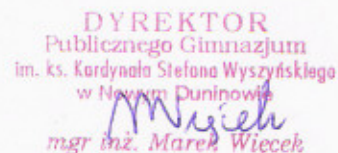 DYREKTOR
Publicznego Gimnazjum
im. ks. Kardynała Stefana Wyszyńskiego
w Nowym Duninowie
mgr inż. Marek Więcek